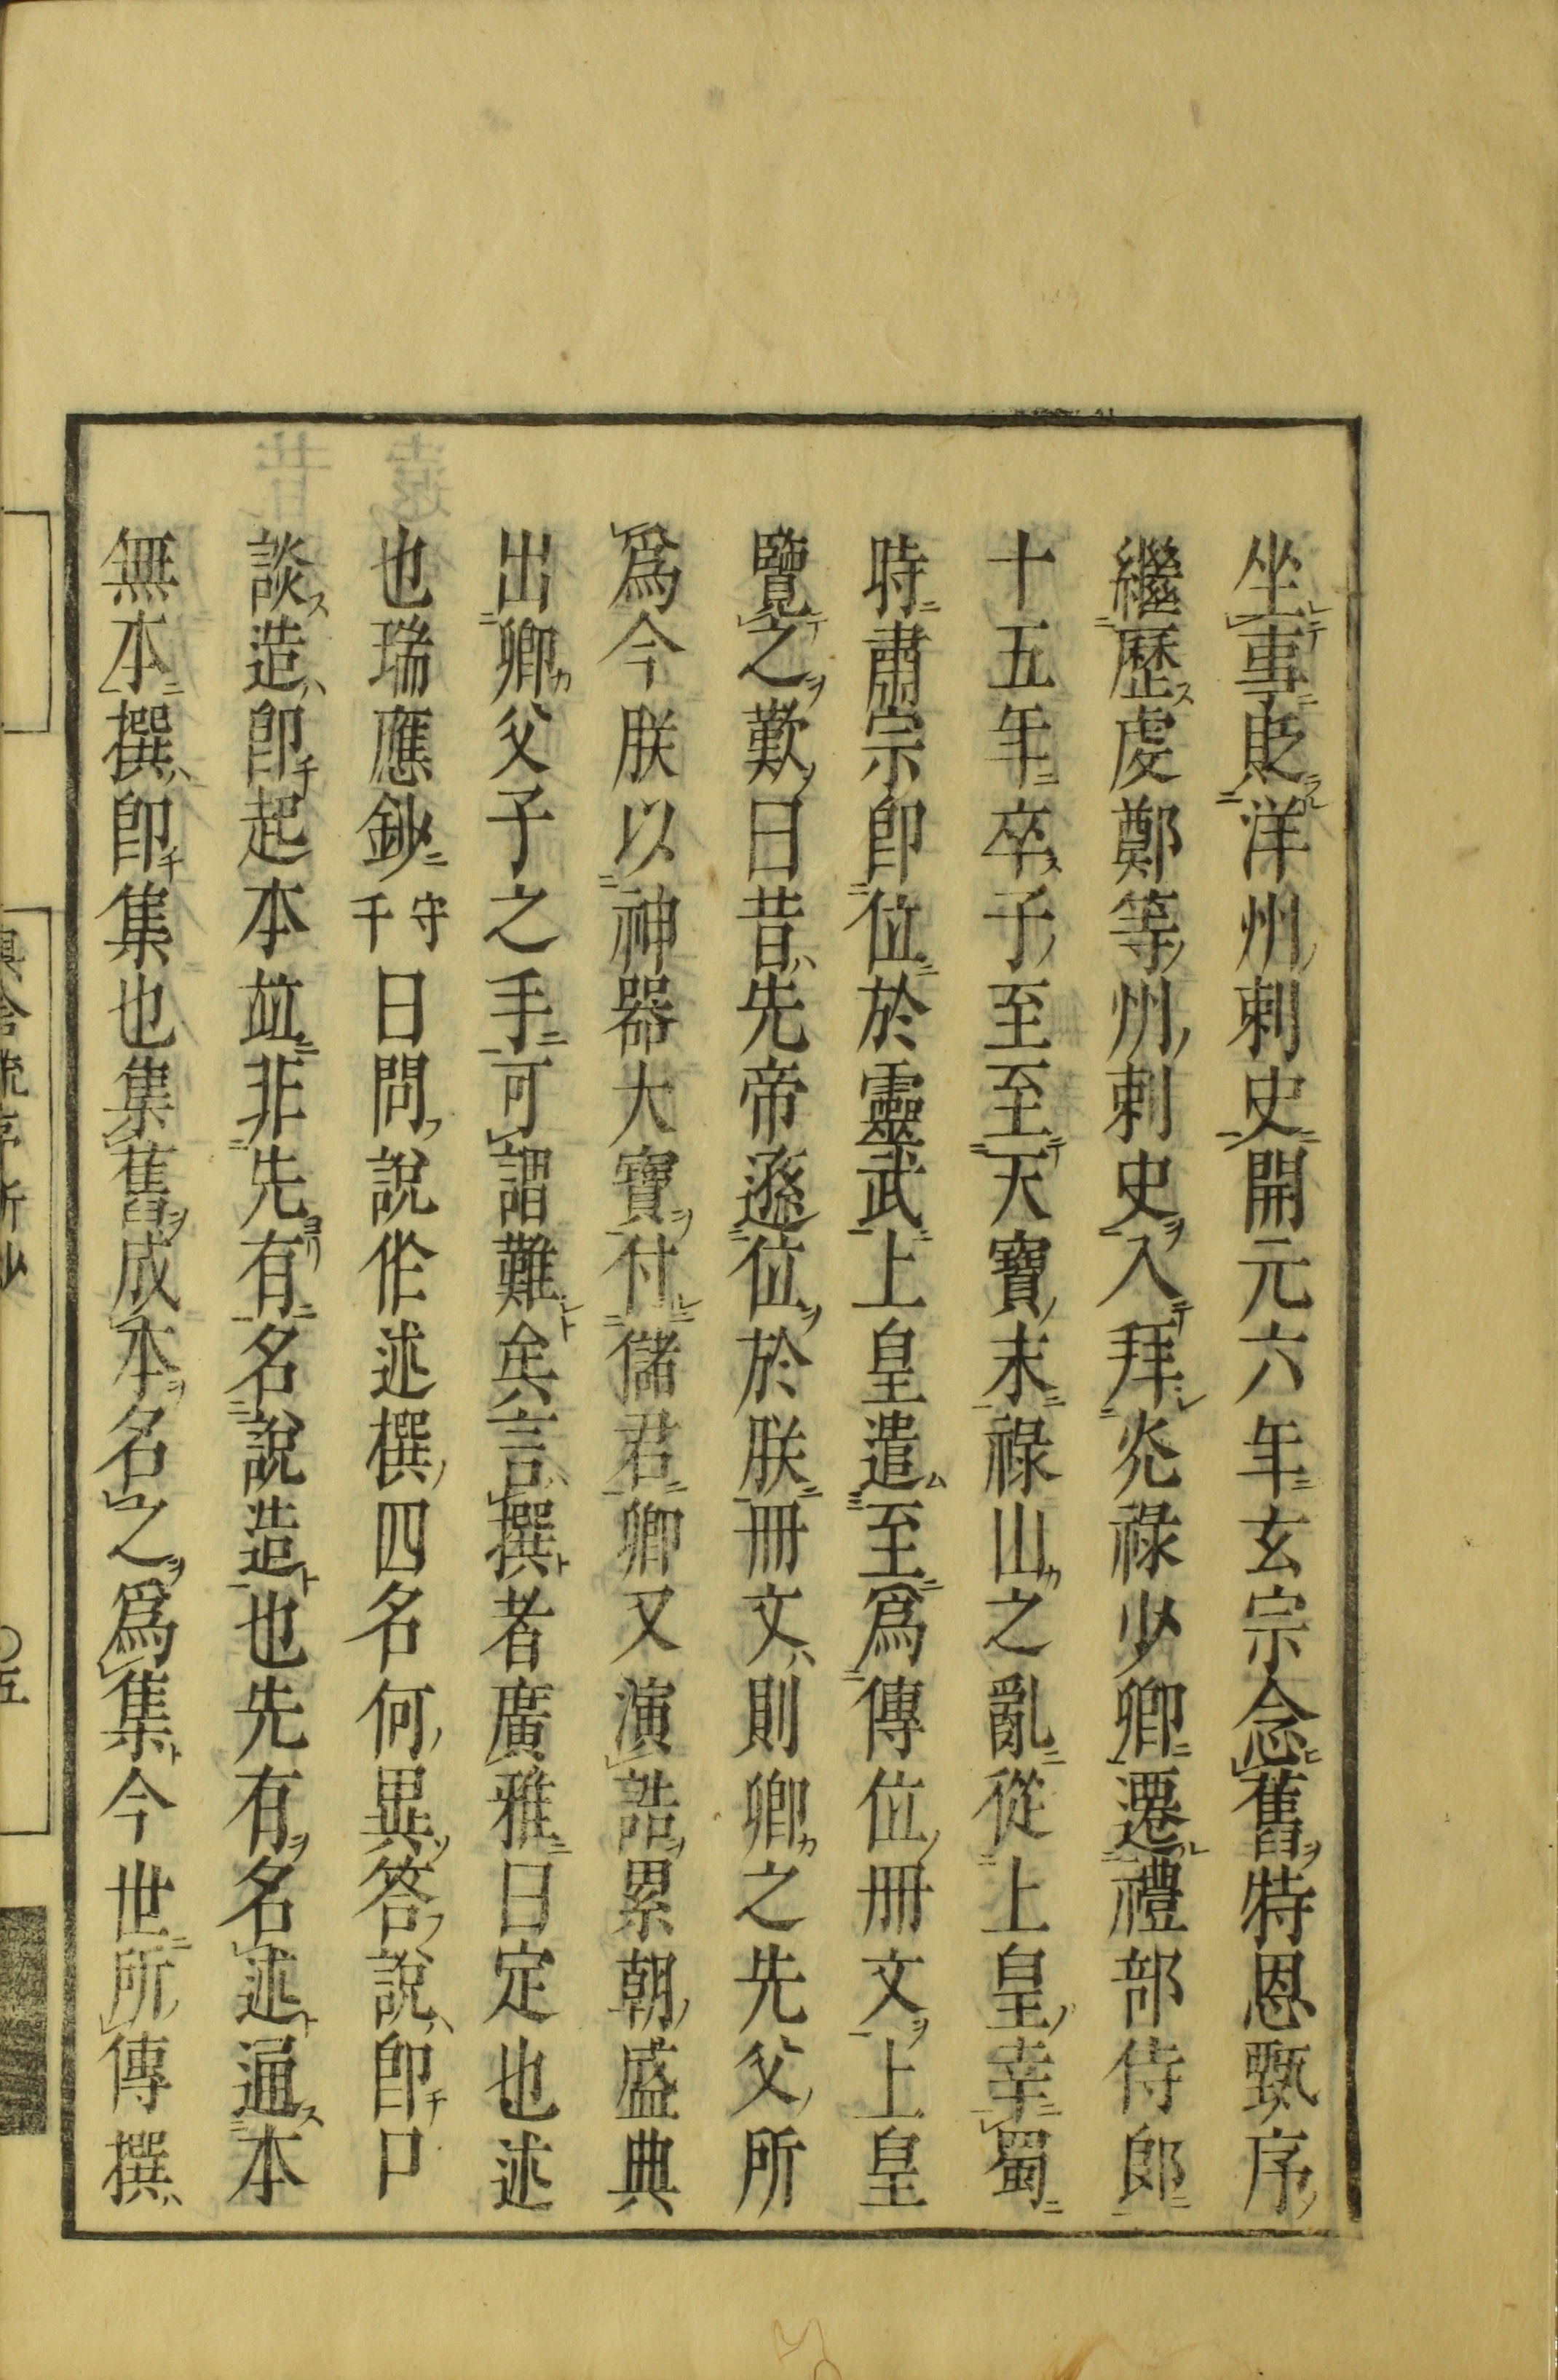 坐事貶洋州刺史開元六年玄宗念舊特恩甄序
繼歷虔鄭等州刺史入拜光祿少卿遷禮部侍郎
十五年卒子至至天寶末祿山之亂從上皇幸蜀
時肅宗即位於靈武上皇遣至爲傳位冊文上皇
覽之歎曰昔先帝遜位於朕冊文則卿之先父所
爲今朕以神器大寶付儲君卿又演誥累朝盛典
出卿父子之手可謂難矣言撰者廣雅曰定也述
也瑞應鈔守千曰問說作述撰四名何異答說即口
談造即起本並非先有名說造也先有名述通本
無本撰即集也集舊成本名之爲集今世所傳撰
〇五